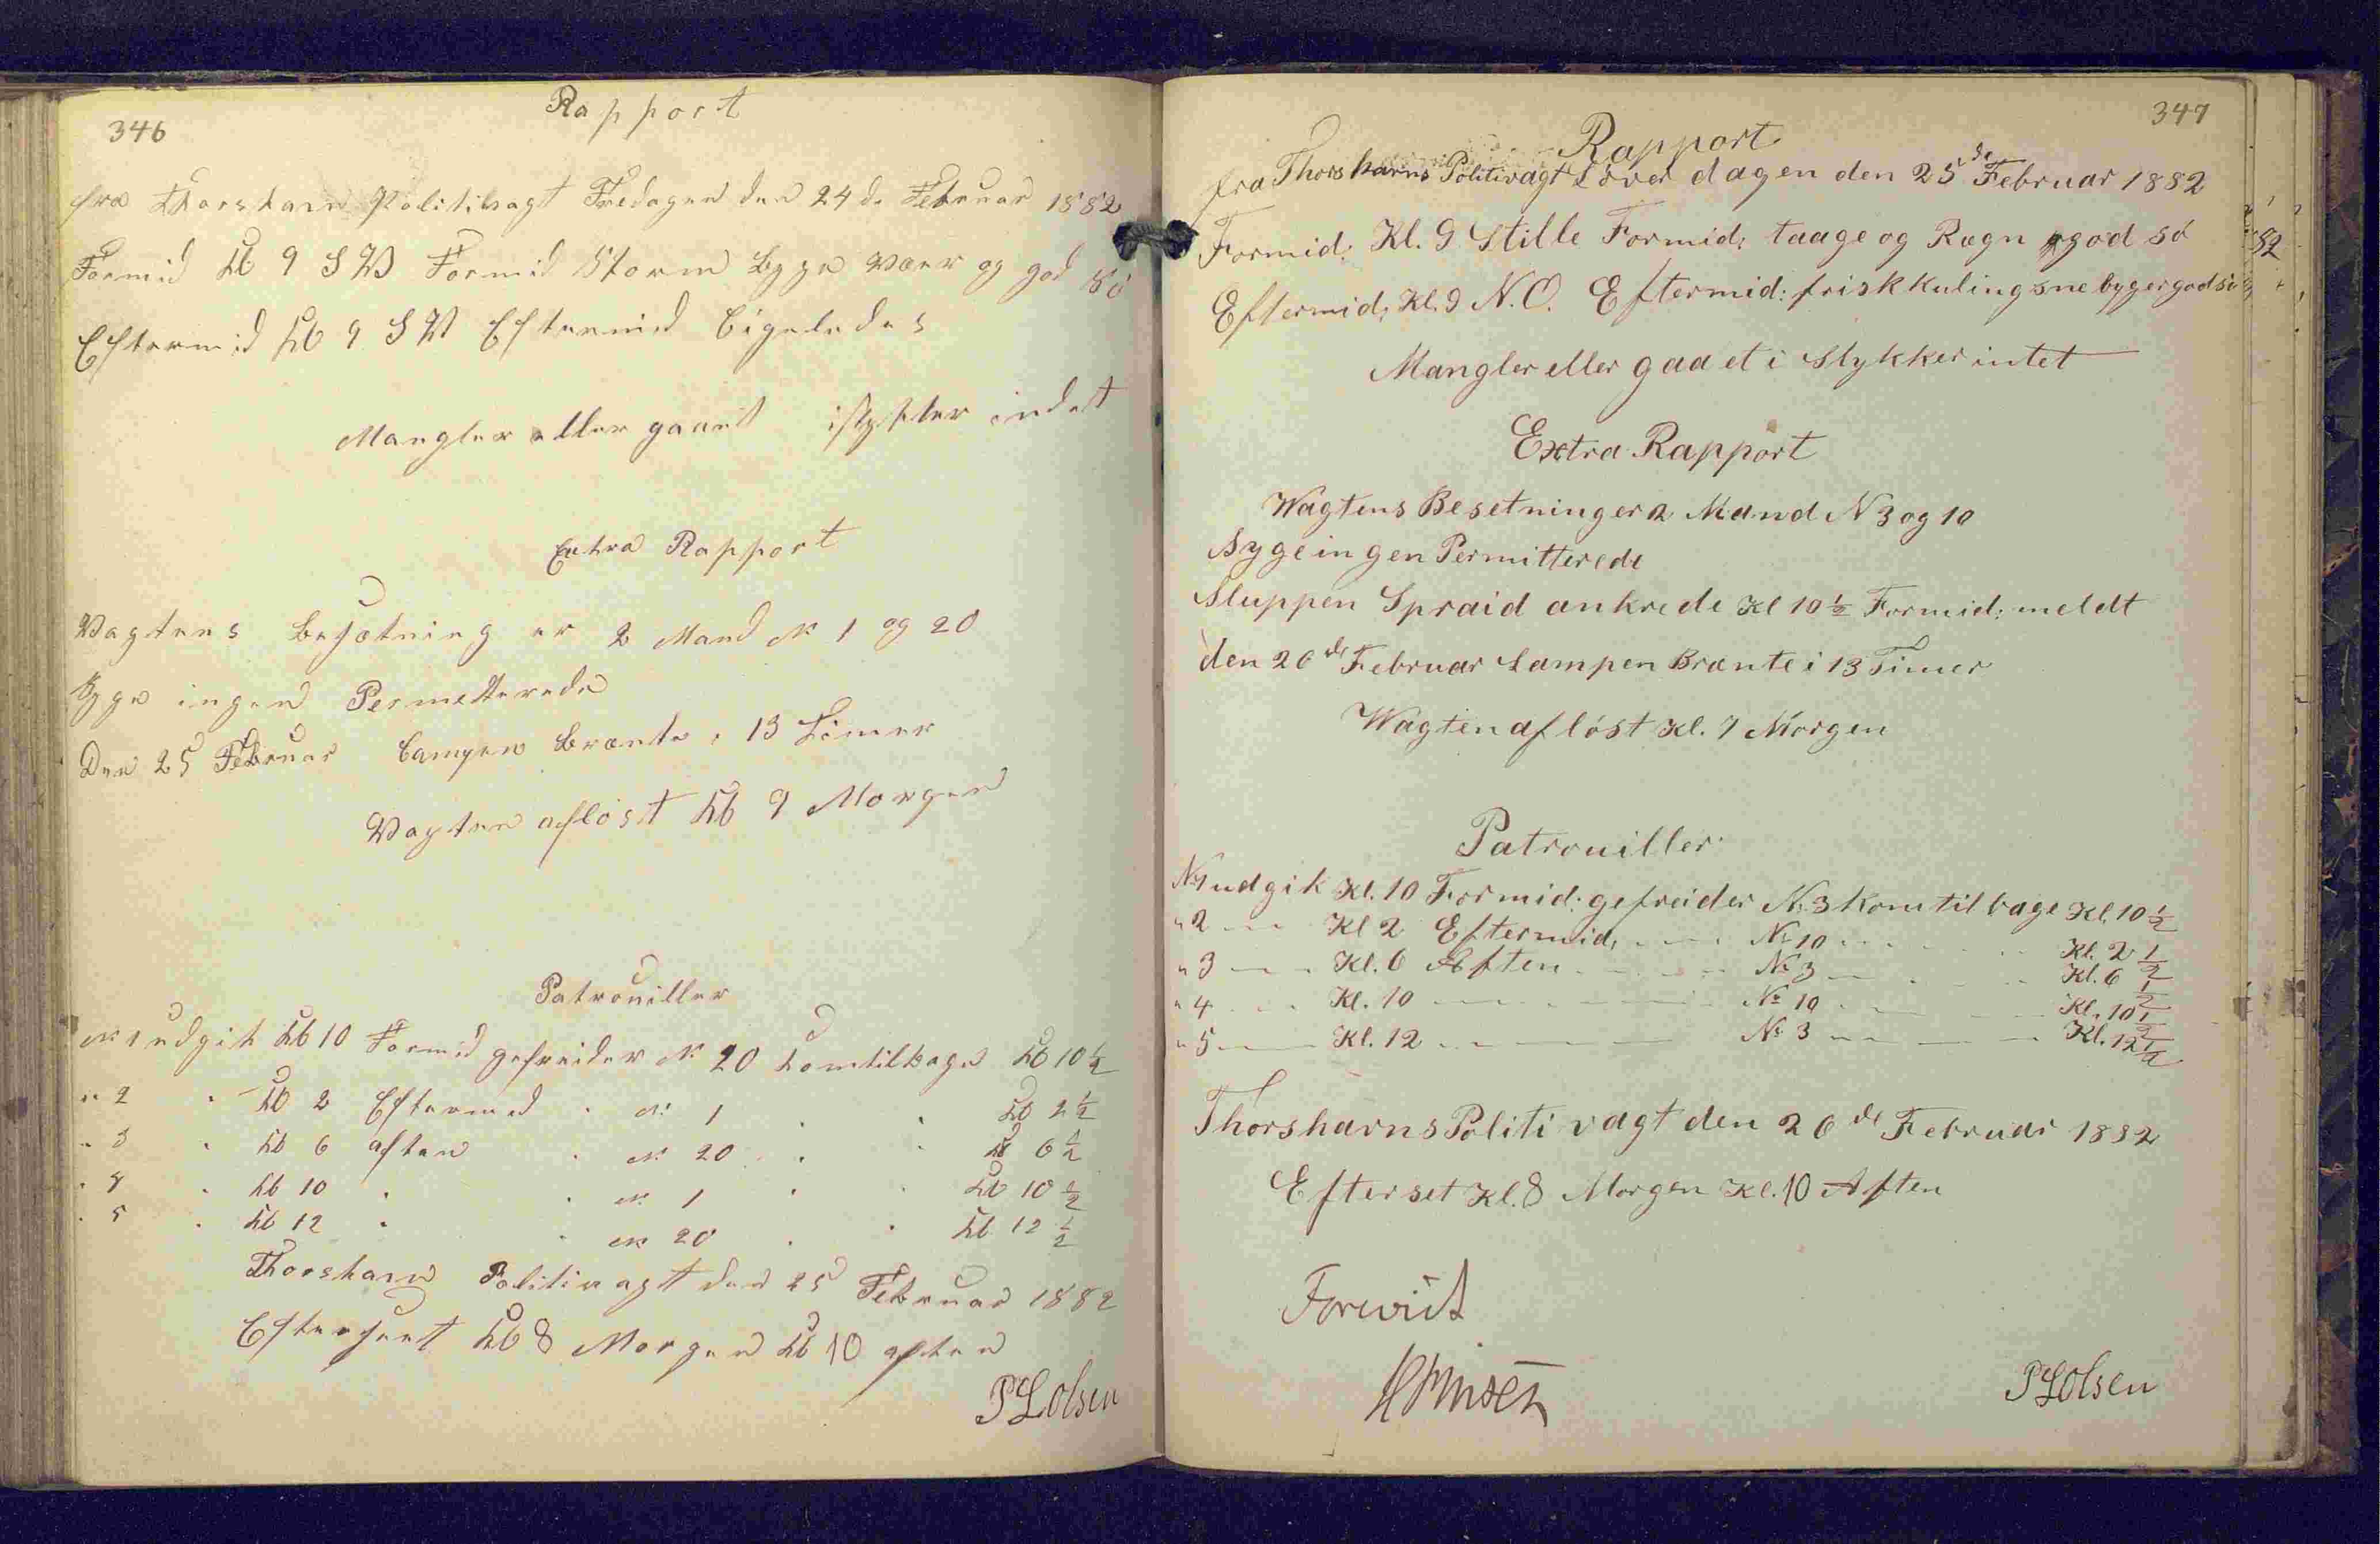 346
Rapport
fra Thorshavn Politivagt Fredagen den 24de Februar 1882
Formid Kl 9 S W Formid Storm Byge Vær og god Sö
Eftermid Kl 9 S W Eftermid Ligeledes
Mangler eller gaaet istykker indet
Extra Rapport
Vagtens Besætning er 2 Mand No 1 og 20
Syge ingen Permetterede
Den 25 Februar Lampen Brænte i 13 Timer
Vagten aflöst Kl 9 Morgen
Patrouiller
No 1 udgik Kl 10 Formid gefreider No 20 komtilbage Kl 10 ½
" 2 " Kl 2 Eftermid " No 1 " " Kl 2 ½
" 3 " Kl 6 aften " No 20 " " Kl 6 ½
" 4 " Kl 10 " " No 1 " " Kl 10 ½
" 5 " Kl 12 " " No 20 " " Kl 12 ½
Thorshavn Politivagt den 25 Februar 1882
Efterseet Kl 8 Morgen Kl 10 aften
P L Olsen
347
Rapport
fra Thorshavns Politivagt Löverdagen den 25de Februar 1882
Formid: Kl. 9 Stille Formid: taage og Rægn og god sö
Eftermid: Kl. 9 N.O. Eftermid: frisk kuling sne byger god sö
Mangler eller gaaet i Stykker intet
Extra Rapport
Wagtens Besetning er 2 Mand N 3 og 10
Syge ingen Permitterede
Sluppen Spraid ankrede Kl 10 ½ Formid: meldt
den 26de Februar Lampen Brænte i 13 Timer
Wagten aflöst Kl. 7 Morgen
Patrouiller
No 1 udgik Kl. 10 Formid: gefreider No 3 kom tilbage Kl. 10 ½
" 2 — Kl 2 Eftermid: — No 10 — Kl. 2 ½
" 3 — Kl. 6 Aften — No 3 — Kl. 6 ½
" 4 — Kl. 10 — No 10 — Kl. 10 ½
" 5 — Kl. 12 — No 3 — Kl. 12 ½
Thorshavns Politivagt den 26de Februar 1882
Efterset Kl. 8 Morgen Kl. 10 Aften
Forevist
P L Olsen
82